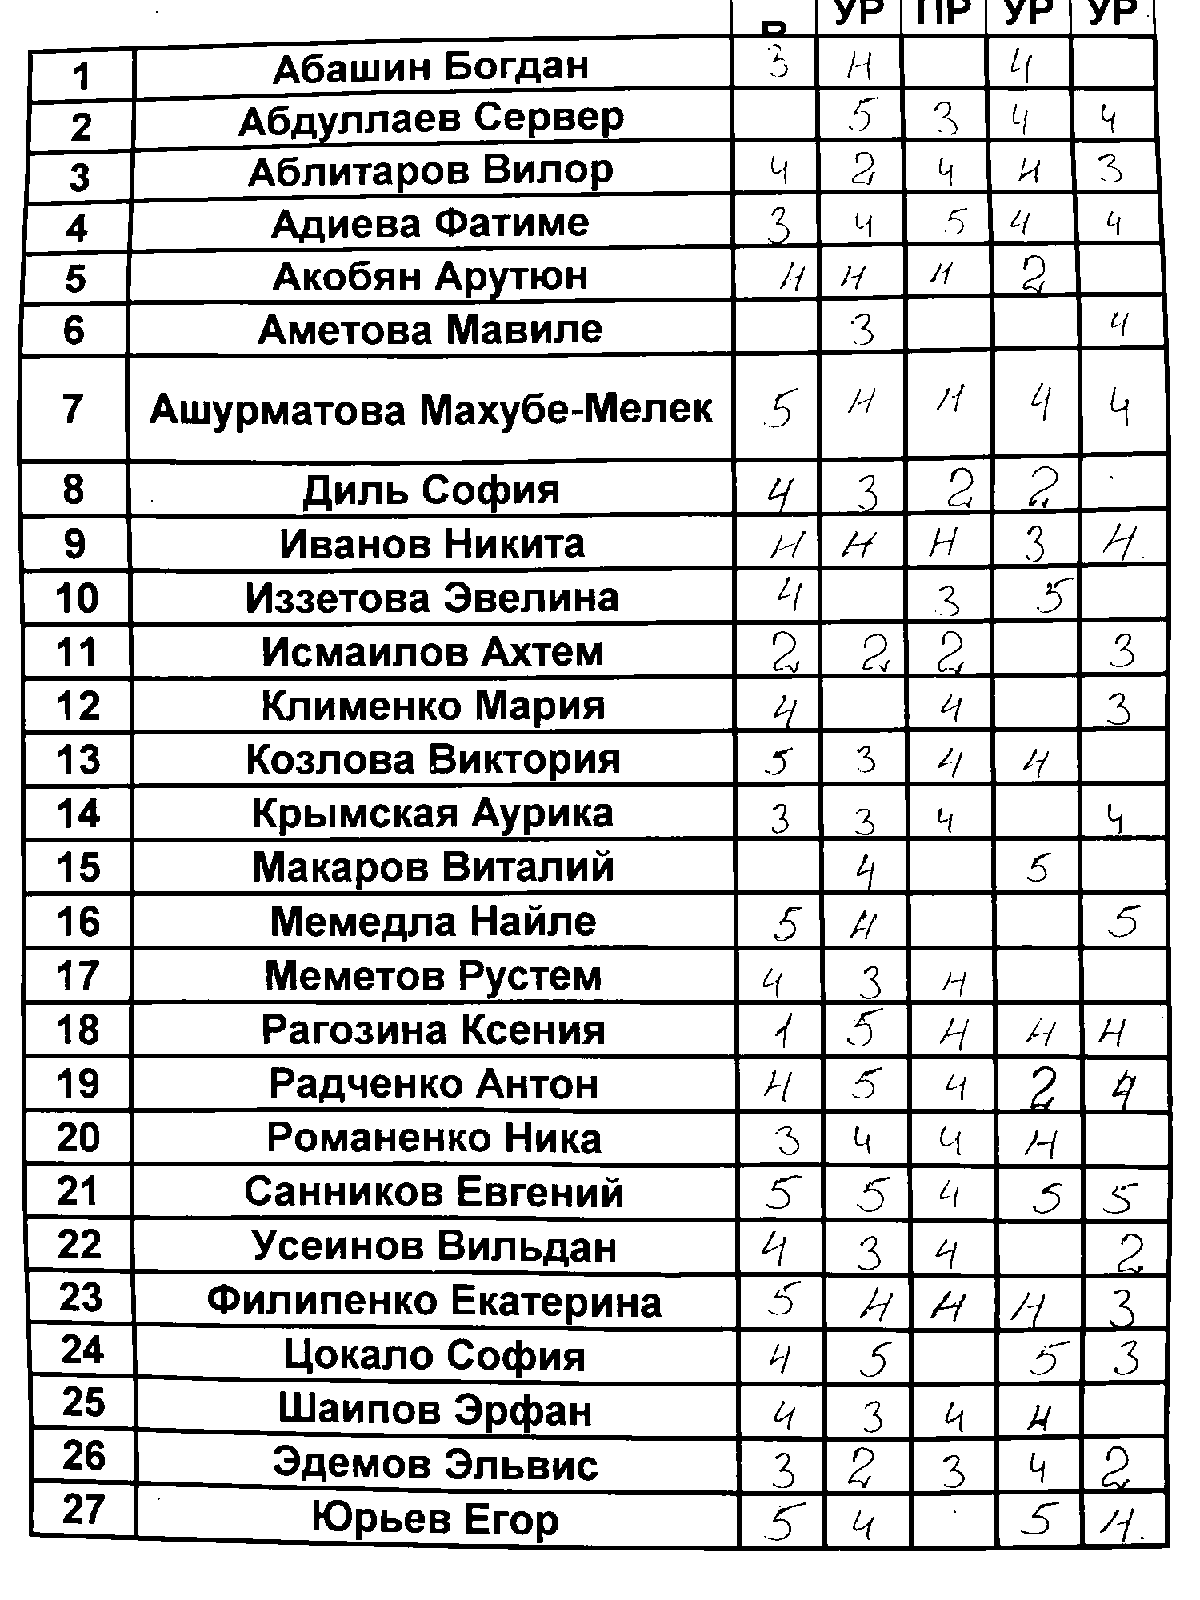 УР ПР УР УР
1 Абашин Богдан 3 н 4
2 Абдуллаев Сервер 5 3 4 4
3 Аблитаров Вилор 4 2 4 н 3
4 Адиева Фатиме 3 4 5 4 4
5 Акобян Арутюн н н н 2
6 Аметова Мавиле 3 4
7 Ашурматова Махубе-Мелек 5 н н 4 4
8 Диль София 4 3 2 2
9 Иванов Никита н н н 3 н
10 Иззетова Эвелина 4 3 5
11 Исмаилов Ахтем 2 2 2 3
12 Клименко Мария 4 4 3
13 Козлова Виктория 5 3 4 н
14 Крымская Аурика 3 3 4 4
15 Макаров Виталий 4 5
16 Мемедла Найле 5 н 5
17 Меметов Рустем 4 3 н
18 Рагозина Ксения 1 5 н н н
19 Радченко Антон н 5 4 2 4
20 Романенко Ника 3 4 4 н
21 Санников Евгений 5 5 4 5 5
22 Усеинов Вильдан 4 3 4 2
23 Филипенко Екатерина 5 н н н 3
24 Цокало София 4 5 5 3
25 Шаипов Эрфан 4 3 4 н
26 Эдемов Эльвис 3 2 3 4 2
27 Юрьев Егор 5 4 5 н